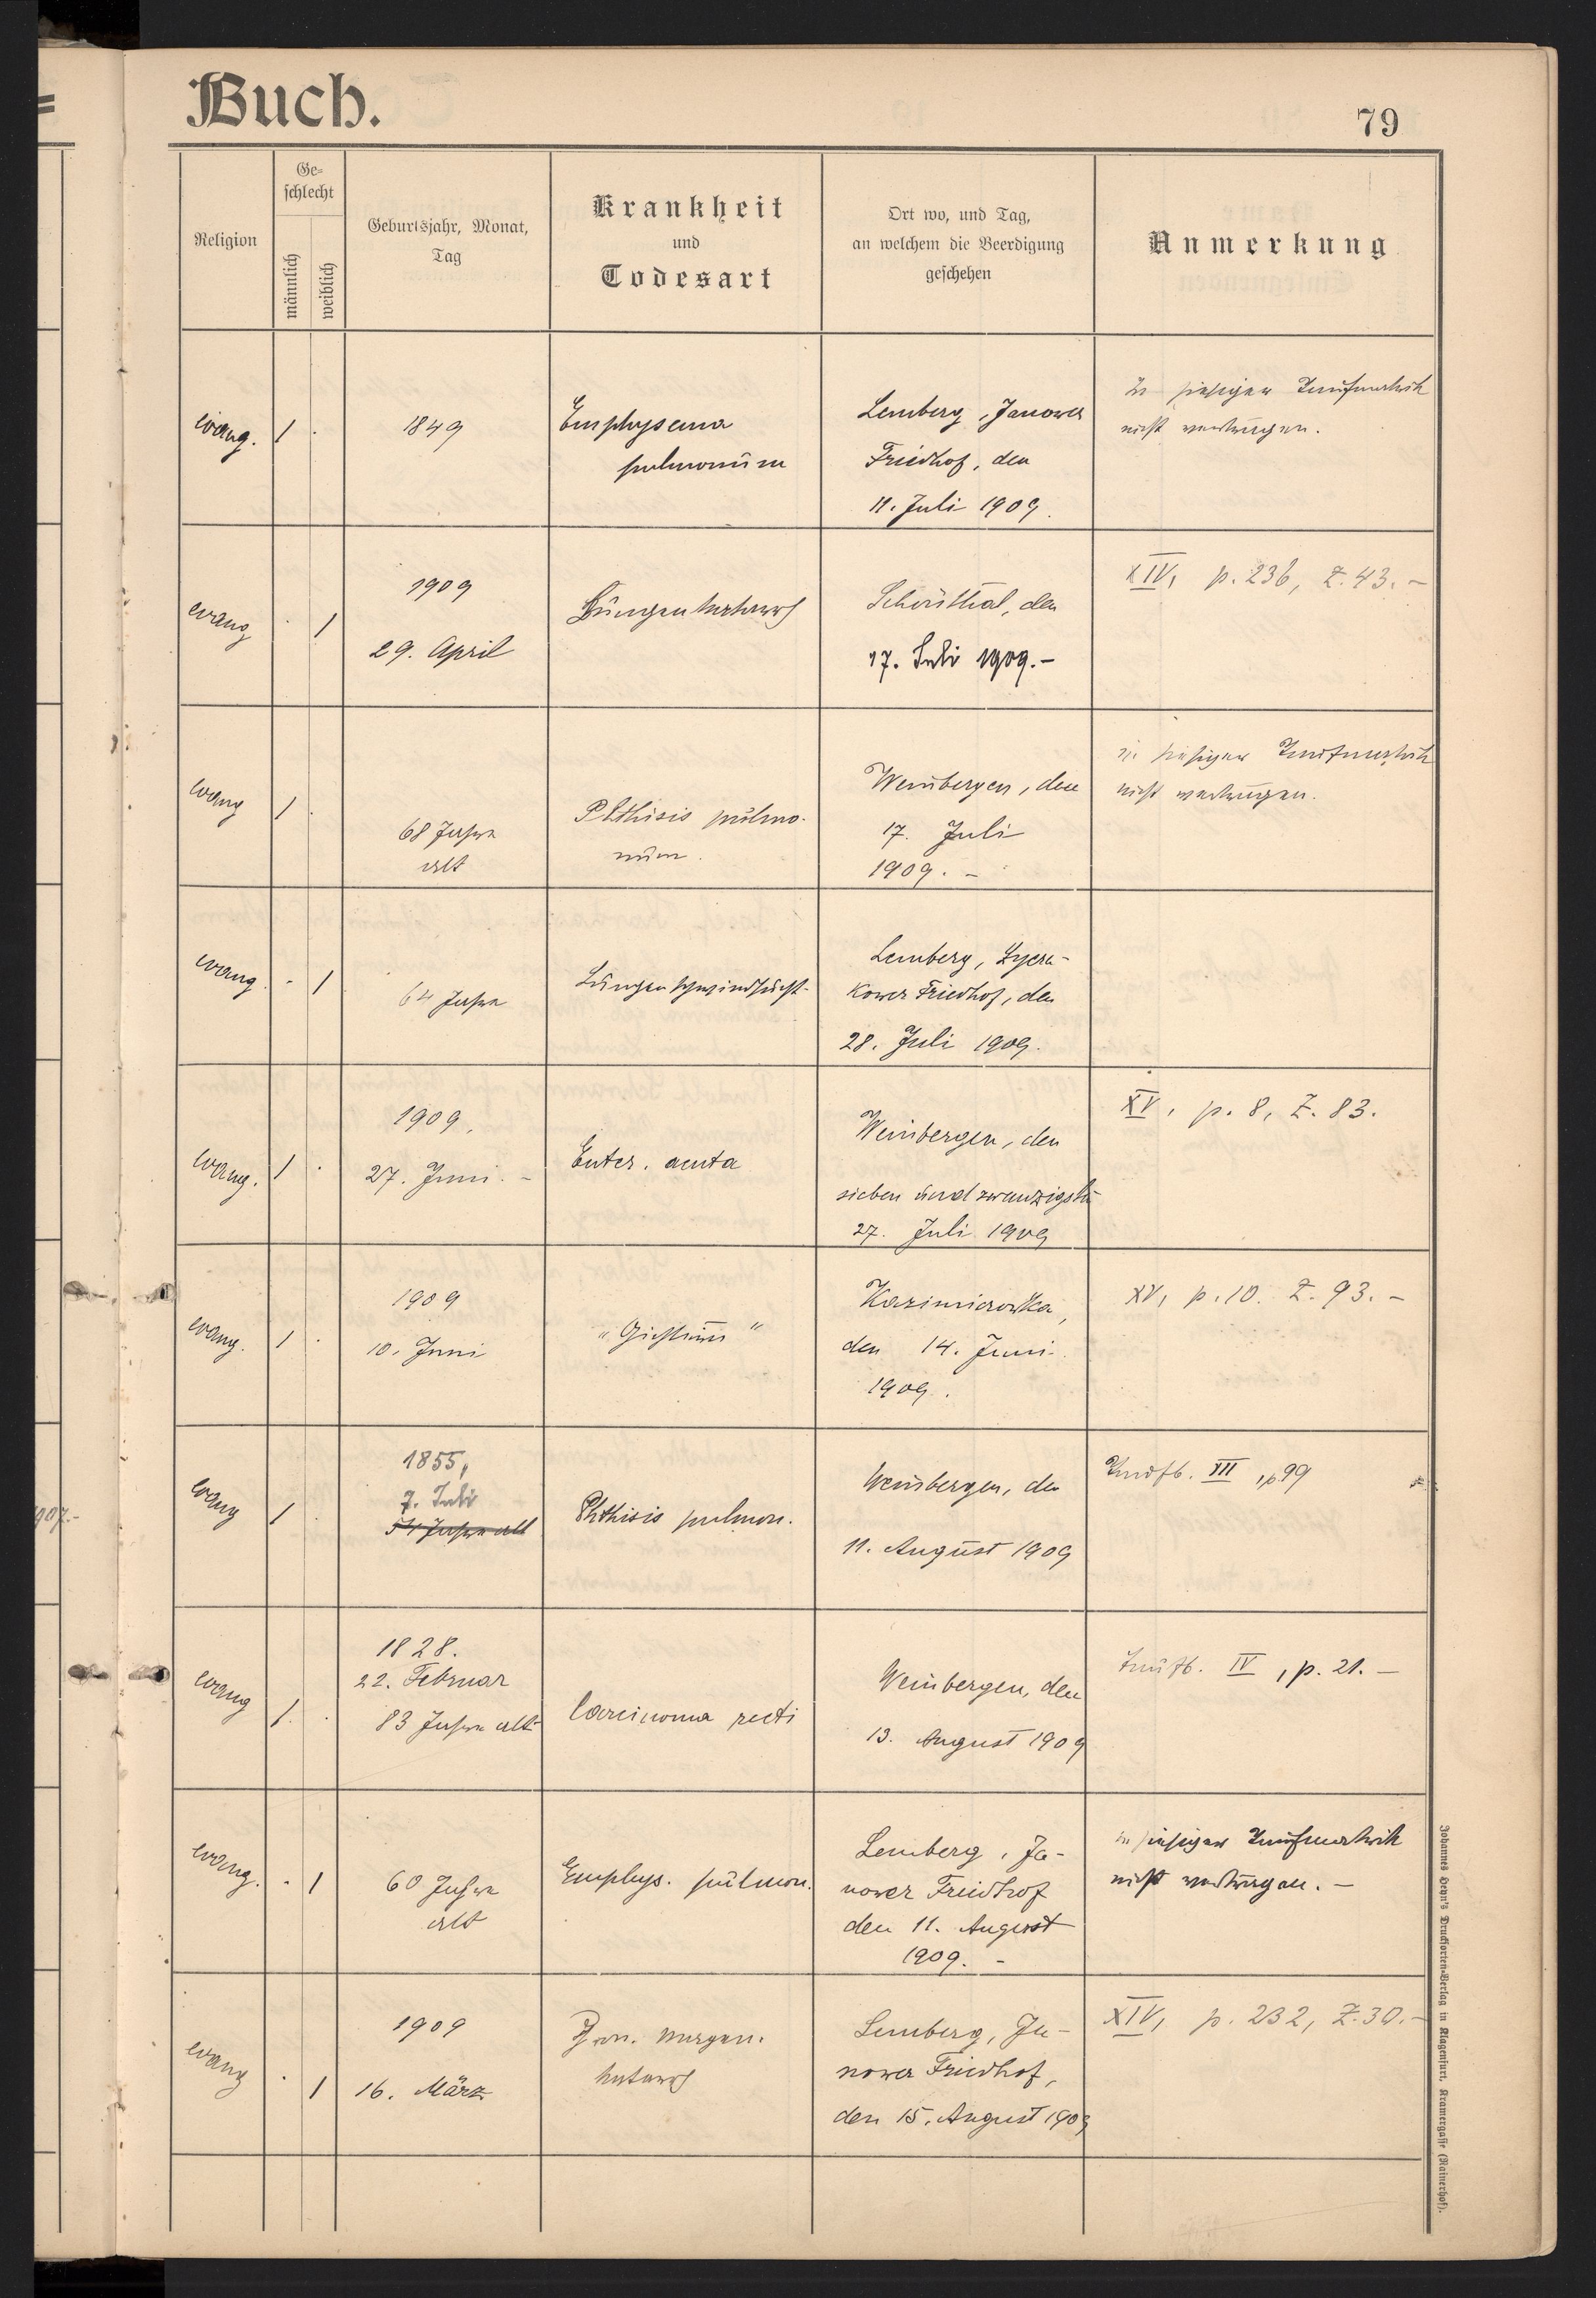 Buch.
79
Religion
Ge-
schlecht
männlich
weiblich
Geburtsjahr, Monat,
Tag
Krankheit
und
Todesart
Ort wo, und Tag,
an welchem die Beerdigung
geschehen
Anmerkung
evang. / . 1849
Emphysema
pulmonum
Lemberg, Janower
Friedhof, den
11. Juli 1909.
In hiesiger Taufmatrik
nicht
evang . /
1909
29. April
Lungenkatarrh
Schönthal, den
17. Juli 1909.-
XIV, p. 236, Z. 43.-
evang / .
68 Jahre
alt
Phthisis pulmo-
num.
Weinbergen, den
17. Juli
1909. -
in hiesiger Taufmatrik
nicht
evang. - /
64 Jahre
Lungenschwindsucht
Lemberg, Lycza-
kower Friedhof, den
28. Juli 1909.
evang. / .
1909,
27. Juni. -
Enter. acuta
Weinbergen, den
sieben und zwanzigsten
27. Juli 1909
XV, p. 8, Z. 83.
evang. / .
1909
10. Juni
Kazimierowka,
den 14. Juni
1909.
XV, p. 10. Z. 93. -
evang /
1855,
7. Juli
54 Jahre alt
Phthisis pulmon.
Weinbergen, den
11. August 1909
Taufb. VII, p 99
evang / .
1828.
22. Februar
83 Jahre alt
Carcinoma recti
Weinbergen, den
13. August 1909
Taufb. IV, p. 21. -
evang. . /
60 Jahre
alt
Emphys. pulmon.
Lemberg, Ja-
nower Friedhof
den 11. August
1909. -
in hiesiger Taufmatrik
nicht
evang . /
1909
16. März
Lemberg, Ja-
nower Friedhof,
den 15. August 1909
XIV, p. 232, Z. 30.-
1907.-
Johannes Heyn's Drucksorten-Verlag in Klagenfurt, Kramergasse (Rainerhof).